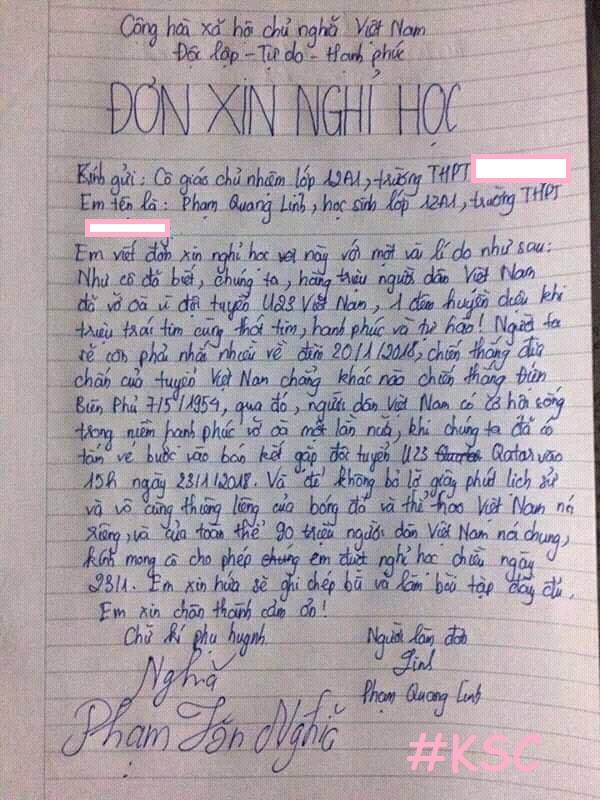 Cộng hoà xã hội chủ nghĩa Việt Nam
Độc lập - Tự do - Hạnh phúc
ĐƠN XIN NGHỈ HỌC
Kính gửi: Cô giáo chủ nhiệm lớp 12A1, trường THPT
Em tên là: Phạm Quang Linh, học sinh lớp 12A1, trường THPT
Em viết đơn xin nghỉ học này với một vài lí do như sau:
Như cô đã biết, chúng ta, hàng triệu người dân Việt Nam
đã vỡ oà vì đội tuyển U23 Việt Nam, 1 đêm huyền diệu khi
triệu trái tim cùng thổn thức, hạnh phúc và tự hào! Người ta
sẽ còn phải nhắc nhiều về đêm 20/1/2018, chiến thắng địa
chấn của tuyển Việt Nam chẳng khác nào chiến thắng Điện
Biên Phủ 7/5/1954, qua đó, người dân Việt Nam có cơ hội sống
trong niềm hạnh phúc vỡ oà một lần nữa, khi chúng ta đã có
tấm vé bước vào bán kết gặp đội tuyển U23 Qatar vào
15h ngày 23/1/2018. Và để không bỏ lỡ giây phút lịch sử
và vô cùng thiêng liêng của bóng đá và thể thao Việt Nam nói
riêng, và của toàn thể 90 triệu người dân Việt Nam nói chung,
kính mong cô cho phép chúng em được nghỉ học chiều ngày
23/1. Em xin hứa sẽ ghi chép bù và làm bài tập đầy đủ.
Em xin chân thành cảm ơn!
Chữ kí phụ huynh Người làm đơn
Nghĩa Linh
Phạm Quang Linh
Phạm Tấn Nghĩa
#KSC